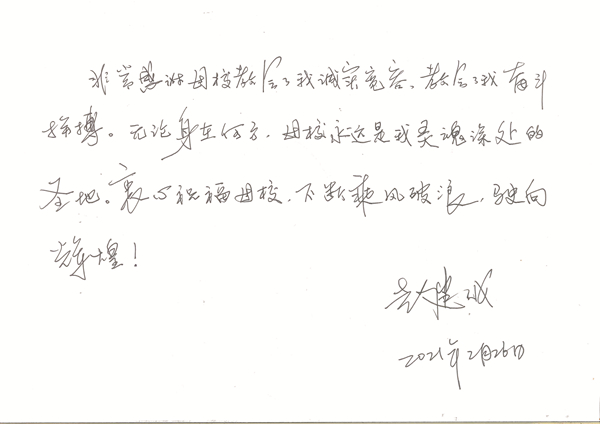 非常感谢母校教会了我诚实宽容、教会了我奋斗
拼搏。无论身在何方，母校永远是我灵魂深处的
圣地。衷心祝福母校，不断乘风破浪，驶向
辉煌！
2021年2月26日